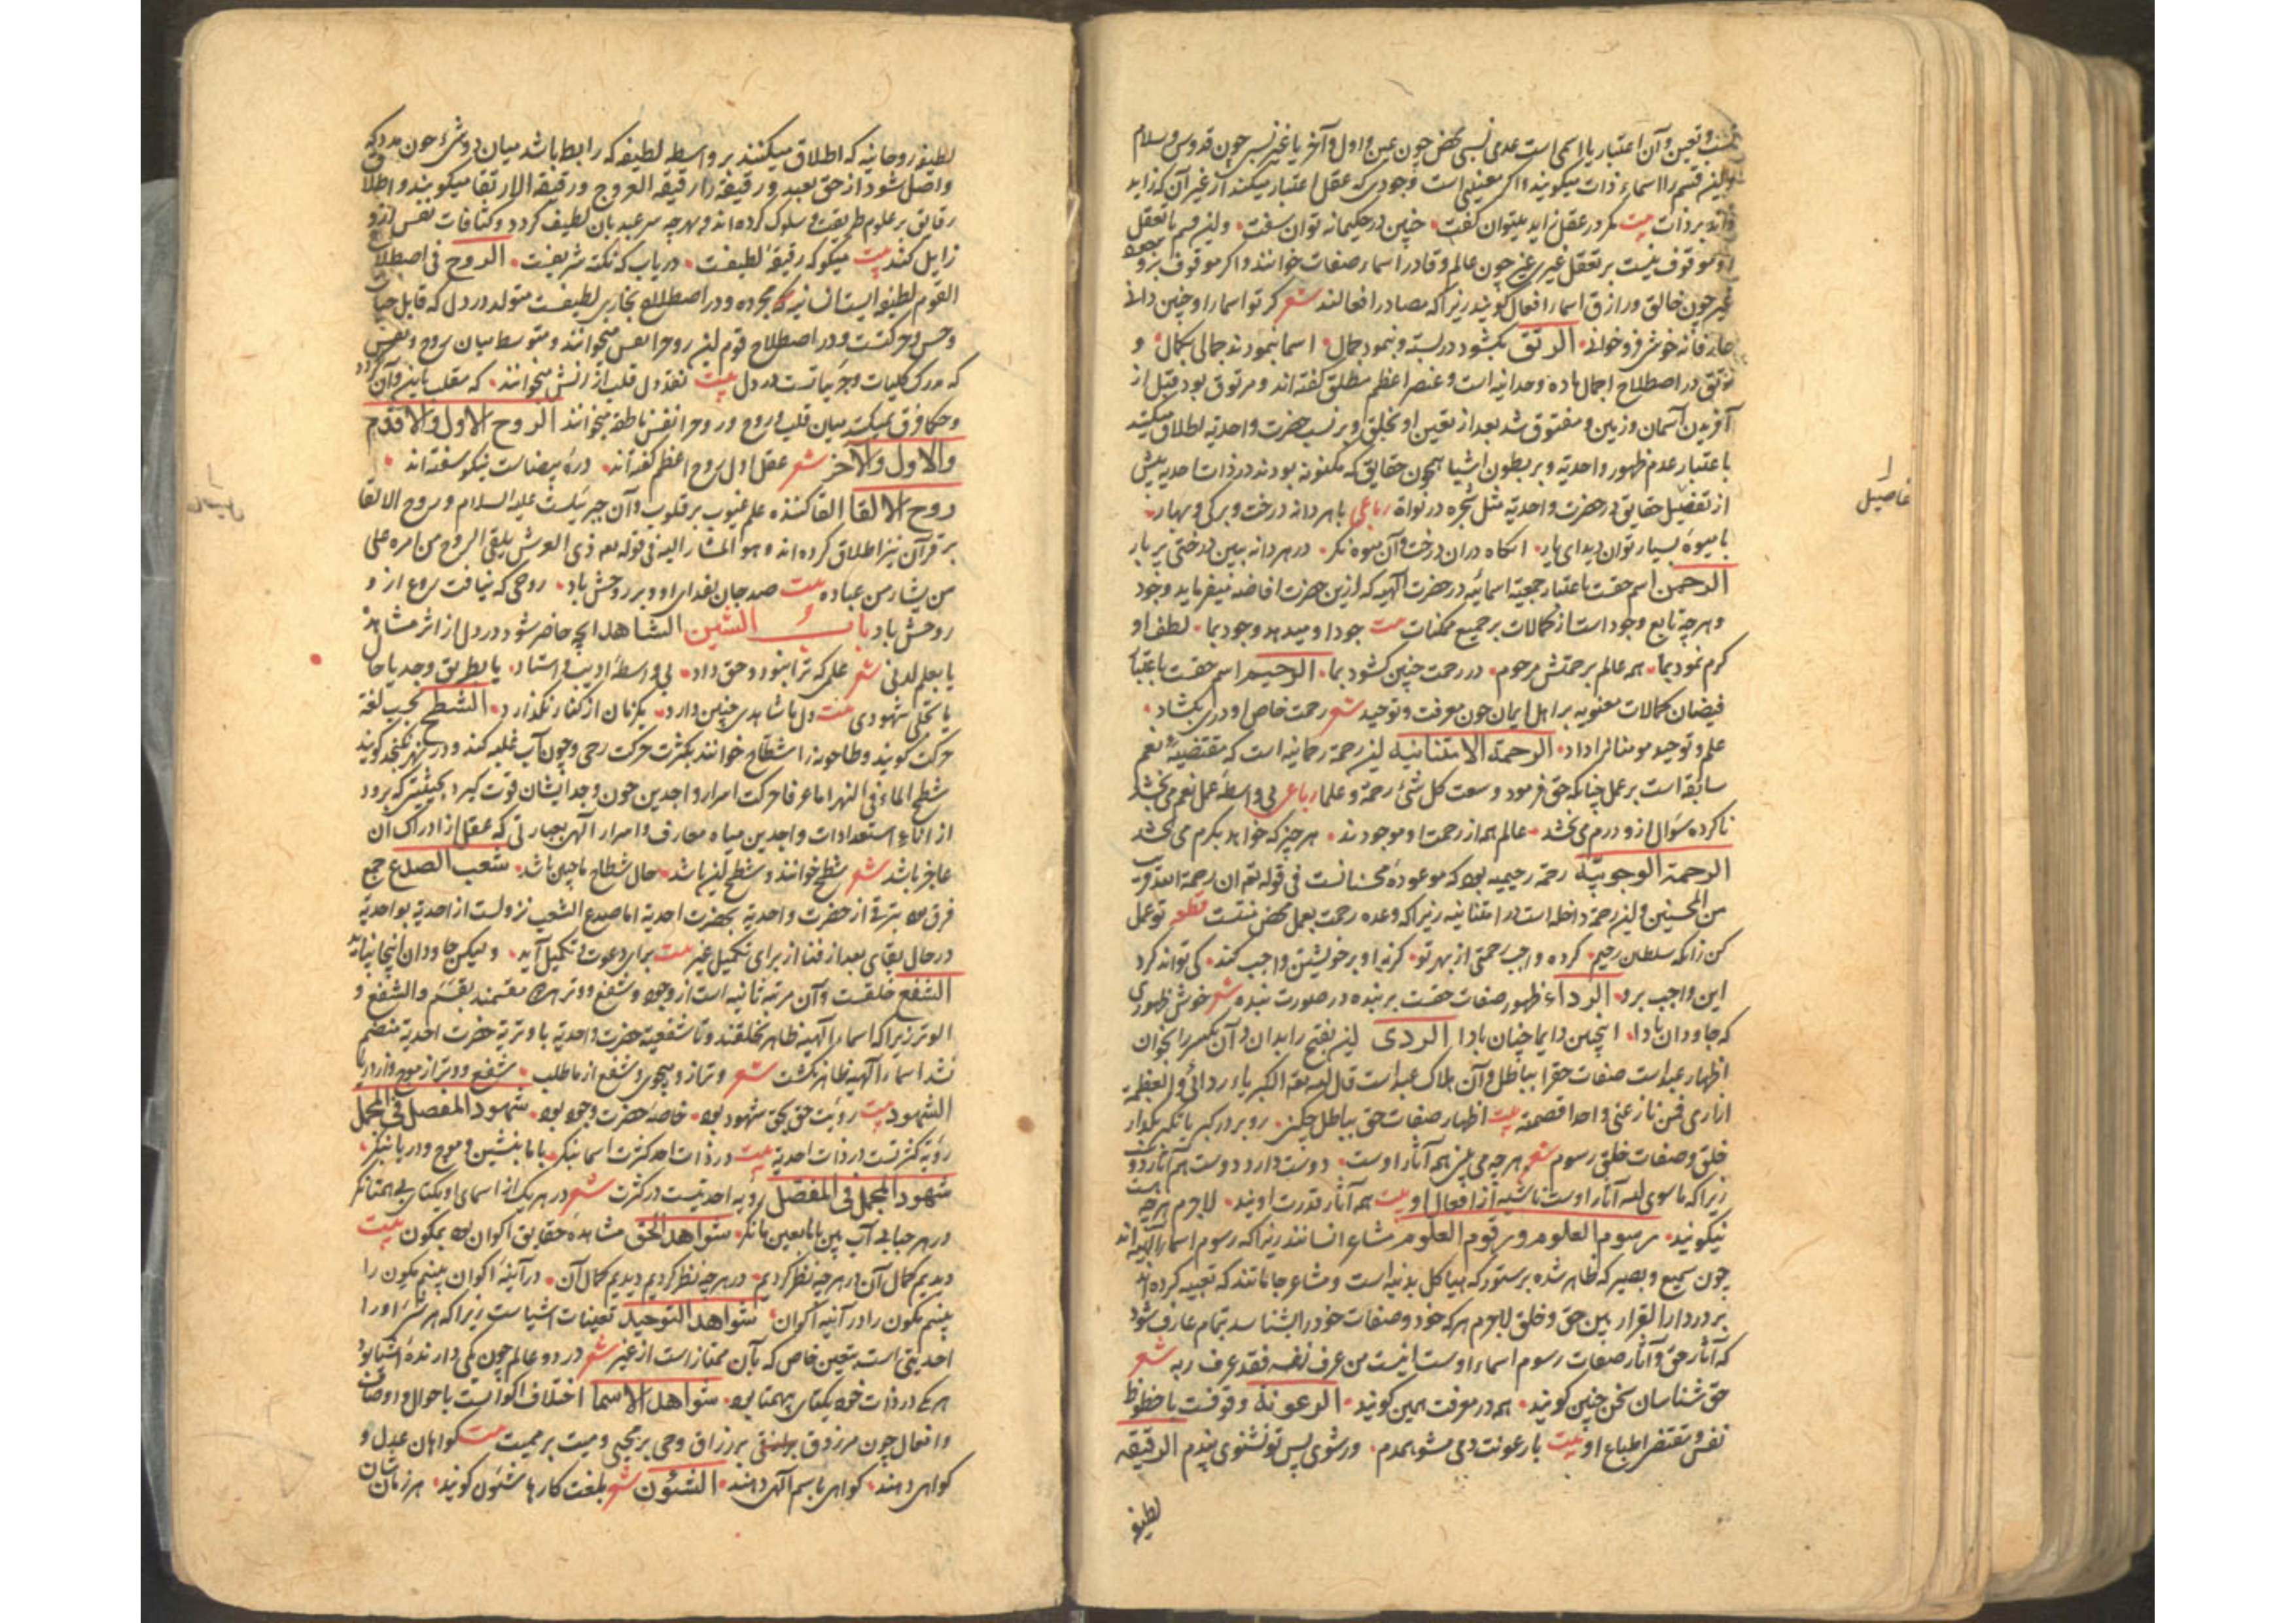 نسب و تعین و آن اعتبار یا اسمی است عدمی نسبی محض چون عین و اول و آخر یا غیر نسبی چون قدوس و سلام
و این قسم را اسماء ذات میگویند و اگر معنی است وجودی که عقل اعتبار میکند از غیر آن که زاید
باشد بر ذات بیت مگر در عقل زاید میتوان گفت چنین در حکیمانه توان سفت و این قسم یا تعقل
او موقوف نیست بر تعقل غیری چون عالم و قادر اسماء صفات خوانند و اگر موقوف بود
غیر چون خالق و رازق اسماء افعال گویند زیرا که مصادر افعالند شعر گر تو اسما را چنین دانی
عارفانه خوش فرو خوانی الرتق بگشود در بسته و بنمود جمال اسما بنمودند جمالی بکمال و
رتق در اصطلاح اجمال ماده وحدانیه است و عنصر اعظم مطلق گفته اند و مرتوق بود قبل از
آفریدن آسمان و زمین و مفتوق شد بعد از تعین او بخلق و بر نسب حضرت واحدیه اطلاق میکنند
باعتبار عدم ظهور واحدیه و بر بطون اشیا همچون حقایق که مکنونه بودند در ذات احدیه پیش
از تفصیل حقایق در حضرت واحدیه مثل شجره در نواة رباعی با هر دانه درخت و برگی و بهار
با میوه بسیار توان دید ای یار آنگاه در آن درخت و آن میوه نگر در هر دانه ببین درختی پر بار
الرحمن اسم حقست باعتبار جمعیة اسمائیه در حضرت الهیه که ازین حضرت افاضه میفرماید وجود
و هرچه تابع وجود است از کمالات بر جمیع ممکنات بیت جود او میدهد وجود بما لطف او
کرم نمود بما همه عالم برحمتش مرحوم در رحمت چنین گشود بما الرحیم اسم حقست باعتبار
فیضان کمالات معنویه بر اهل ایمان چون معرفت و توحید شعر رحمت خاص او دری بگشاد
علم و توحید مومنان را داد الرحمة الامتنانیه این رحمة رحمانیه است که مقتضیه نعم
سابقه است بر عمل چنانکه حق فرمود وسعت کل شیء رحمة و علما رباعی بی واسطه عمل نعم می بخشد
ناکرده سوال از و درم می بخشد عالم همه از رحمت او موجودند هر چیز که خواهد بکرم می بخشد
الرحمة الوجوبیة رحمة رحیمیه بود که موعوده محسنانست فی قوله تعه ان رحمة الله قریب
من المحسنین و این رحمة داخله است در امتنانیه زیرا که وعده رحمت بعمل محض منتست قطعه تو عمل
کن زانکه سلطان رحیم کرده واجب رحمتی از بهر تو گر نه او بر خویشتن واجب کند کی تواند کرد
این واجب برو الرداء ظهور صفات حقست بر بنده در صورت بنده شعر خوش ظهوری
که جاودان بادا اینچنین دایما چنان بادا الردی این بفتح را بدان و آن بکسر را بخوان
اظهار عبد است صفات حق را بباطل و آن هلاک عبد است قال الله تعه الکبریاء ردائی و العظمة
ازاری فمن نازعنی واحدا قصمته بیت اظهار صفات حق بباطل چکنی رو بردر کبر یا تکبر بگذار
خلق و صفات خلق رسوم شعر هر چه می بینی همه آثار اوست دوست دارد دوست هم آثار دوست
زیرا که ما سوی الله آثار اوست ناشیه از افعال او بیت همه آثار قدرت اویند لاجرم هرچه هست
نیکویند رسوم العلوم و رقوم العلوم مشاعر انسانند زیرا که رسوم اسماء الهیه اند
چون سمیع و بصیر که ظاهر شده بر ستور که هیاکل بدنیه است و مشاعر جانانند که تعبیه کرده اند
بر در دار القرار بین حق و خلق لاجرم هر که خود و صفات خود را بشناسد بتمام عارف شود
که آثار حق و آثار صفات رسوم اسماء اوست اینست من عرف نفسه فقد عرف ربه شعر
حق شناسان سخن چنین گویند همه در معرفت همین گویند الرعونة وقوفست با حظوظ
نفس و مقتضی اطباع او بیت با رعونت دمی مشو همدم ور شوی پس تو نشنوی پندم الرقیقه
لطیفه
لطیفه روحانیه که اطلاق میکنند بر واسطه لطیفه که رابط باشد میان دو شیء چون مددی که
واصل شود از حق بعبد و رقیقه را رقیقة العروج و رقیقة الارتقا میگویند و اطلاق
رقایق بر علوم طریقت و سلوک کرده اند و بهر چه سر عبد بآن لطیف گردد و کثافات نفس از و
زایل کند بیت میگو که رقیقه لطیفست دریاب که نکته شریفست الروح فی اصطلاح
القوم لطیفه ایست انسانیه که مجرده و در اصطلاح بخاری لطیفست متولد در دل که قابل حیات
و حس و حرکتست و در اصطلاح قوم این روح را نفس میخوانند و متوسط میان روح و نفس
که مدرک کلیات و جزئیاتست در دل بیت نقد دل قلب از انش میخوانند که مقلب باین و آن گردد
و حکما فرق نمیکنند میان قلب و روح و روح را نفس ناطقه میخوانند الروح الاول و الاقدم
و الاول و الآخر شعر عقل اول روح اعظم گفته اند دره بیضاست نیکو سفته اند
روح الالقا القا کننده علم غیوب بر قلوب و آن جبریلست علیه السلام و روح الالقا
بر قرآن نیز اطلاق کرده اند و هو المشار الیه فی قوله تعه ذی العرش یلقی الروح من امره علی
من یشاء من عباده بیت صد جان بفدای او و بر روحش باد روحی که نیافت روح از و
روحش باد باب الشین الشاهد آنچه حاضر شود در دل از اثر مشاهده
یا بعلم لدنی شعر علمی که ترا بنور و حق داد بی واسطه ادیب و استاد یا بطریق وجد یا حال
یا تجلی شهودی بیت دل با شاهدی چنین دارد یکزمان از کنار نگذارد الشطح بحسب لغة
حرکت گویند و طاحونه را شطاح خوانند بکثرت حرکت رحی و چون آب غلبه کند و در نهر نگنجد گویند
شطح الماء فی النهر اما عرفا حرکت اسرار واجدین چون وجد ایشان قوت گیرد بحیثیتی که برود
از اناء استعدادات واجدین میاه معارف و اسرار الهی بعبارتی که عقل از ادراک آن
عاجز باشد شعر شطح خوانند و شطح این باشد حال شطاح ما چنین باشد شعب الصدع جمع
فرق بود بترقی از حضرت واحدیة بحضرت احدیة اما صدع الشعب نزولست از احدیة بواحدیة
در حال بقای بعد از فنا از برای تکمیل غیر بیت برای دعوت و تکمیل آید ولیکن جاودان اینجا نپاید
الشفع خلقست و آن مرتبه ثانیه است از وجود و شفع و وتر هر دو مقسمند بقسم و الشفع و
الوتر زیرا که اسماء الهیه ظاهر بخلقند و تا شفعیة حضرت واحدیة با وتریة حضرت احدیة منضم
نشد اسماء الهیه ظاهر نگشت شعر وتر از و میجوی و شفع از ما طلب شفع و وتر از موج و از دریا
الشهود بیت رؤیت حق بحق شهود بود خاصه حضرت وجود بود شهود المفصل فی المجمل
رؤیة کثرتست در ذات احدیة بیت در ذات احد کثرت اسما بنگر با ما بنشین و موج و دریا بنگر
شهود المجمل فی المفصل رؤیة احدیتست در کثرت شعر در هر یک از اسمای او یکتای بی همتا نگر
در هر حبابی آب بین ما را بعین ما نگر شواهد الحق مشاهده حقایق اکوان بود بمکون بیت
دیدیم کمال آن در هرچه نظر کردیم در هرچه نظر کردیم دیدیم کمال آن در آینه اکوان بینیم مکون را
بینیم مکون را در آینه اکوان شواهد التوحید تعینات اشیاست زیرا که هر شیء را
احدیتی است بتعین خاص که بآن ممتاز است از غیر شعر در دو عالم چون یکی دارنده اشیا بود
هر یکی در ذات خود یکتای بیهمتا بود شواهد الاسما اختلاف اکوانست باحوال و اوصاف
و افعال چون مرزوق بر رزاق و حی بر محیی و میت بر ممیت بیت گواهان عدل و
گواهی دهند گواهی باسم الهی دهند الشئون شعر بلغت کارها شئون گویند هر زمان شان